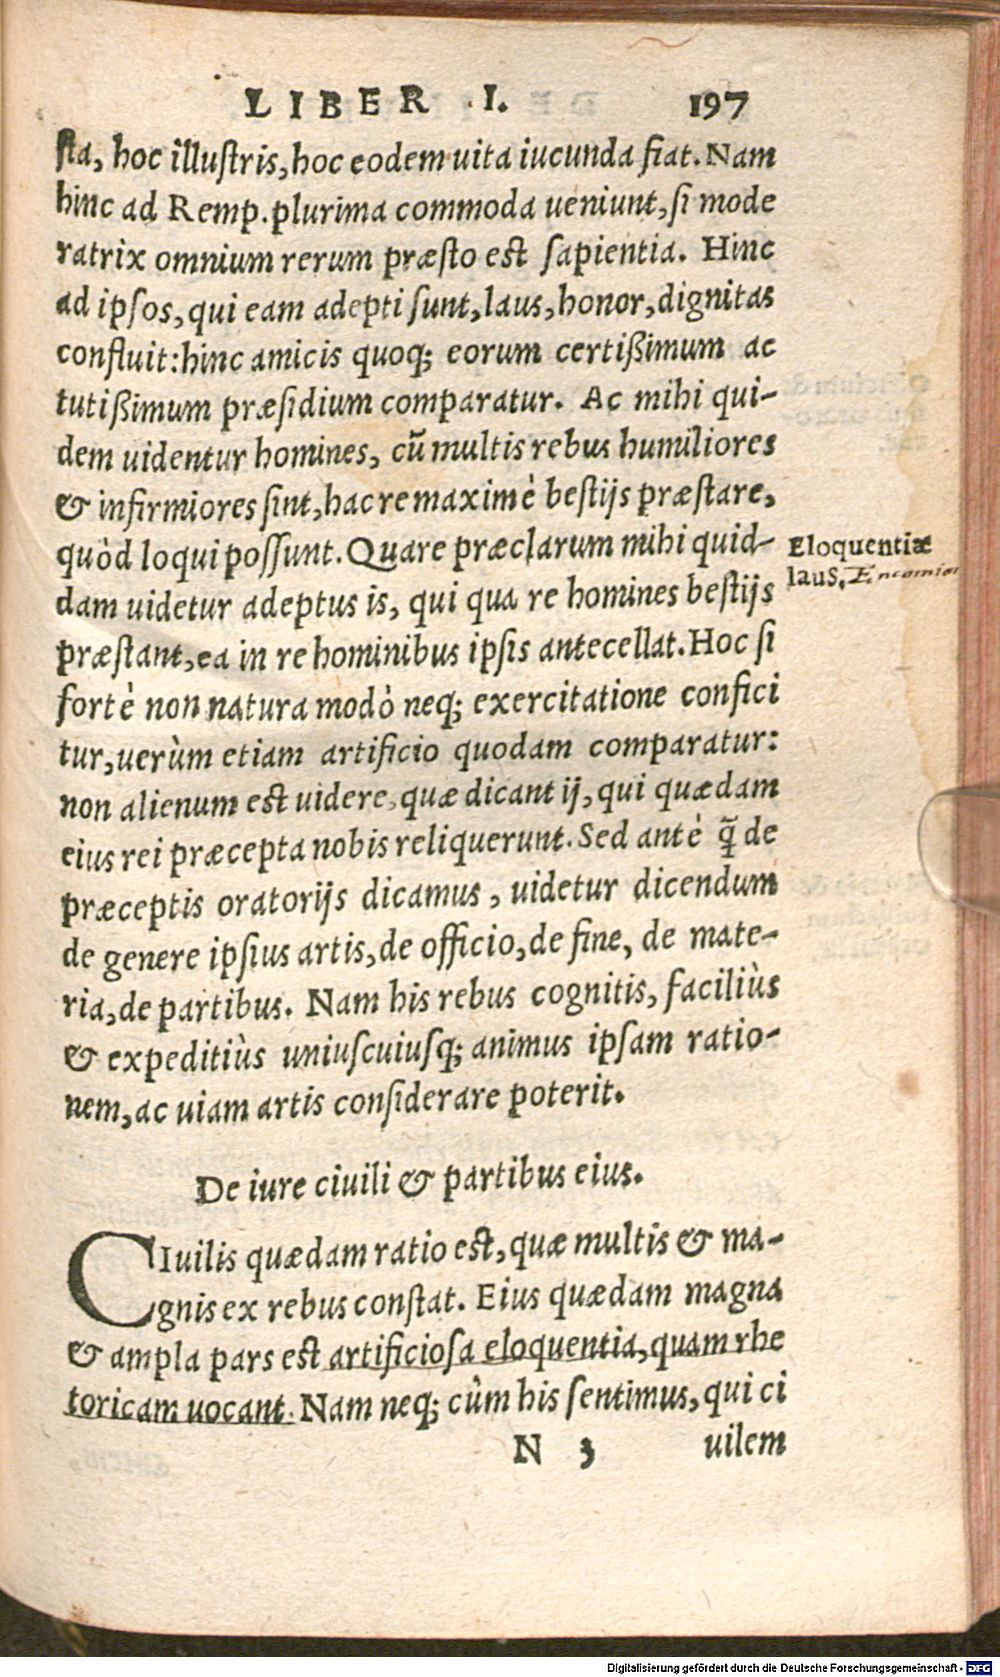 LIBER I. 197
sta, hoc illustris, hoc eodem uita iucunda fiat. Nam
hinc ad Remp. plurima commoda ueniunt, si mode
ratrix omnium rerum præsto est sapientia. Hinc
ad ipsos, qui eam adepti sunt, laus, honor, dignitas
confluit: hinc amicis quoq; eorum certißimum ac
tutißimum præsidium comparatur. Ac mihi qui-
dem uidentur homines, cū multis rebus humiliores
& infirmiores sint, hac re maximè bestijs præstare,
quòd loqui possunt. Quare præclarum mihi quid-
dam uidetur adeptus is, qui qua re homines bestijs
præstant, ea in re hominibus ipsis antecellat. Hoc si
fortè non natura modò neq; exercitatione confici
tur, uerùm etiam artificio quodam comparatur:
non alienum est uidere, quæ dicant ij, qui quædam
eius rei præcepta nobis reliquerunt. Sed antè q̃ de
præceptis oratorijs dicamus, uidetur dicendum
de genere ipsius artis, de officio, de fine, de mate-
ria, de partibus. Nam his rebus cognitis, faciliùs
& expeditiùs uniuscuiusq; animus ipsam ratio-
nem, ac uiam artis considerare poterit.
Eloquentiæ
laus. Encomion
De iure ciuili & partibus eius.
CIuilis quædam ratio est, quæ multis & ma-
gnis ex rebus constat. Eius quædam magna
& ampla pars est artificiosa eloquentia, quam rhe
toricam uocant. Nam neq; cûm his sentimus, qui ci
N 3 uilem
Digitalisierung gefördert durch die Deutsche Forschungsgemeinschaft - DFG